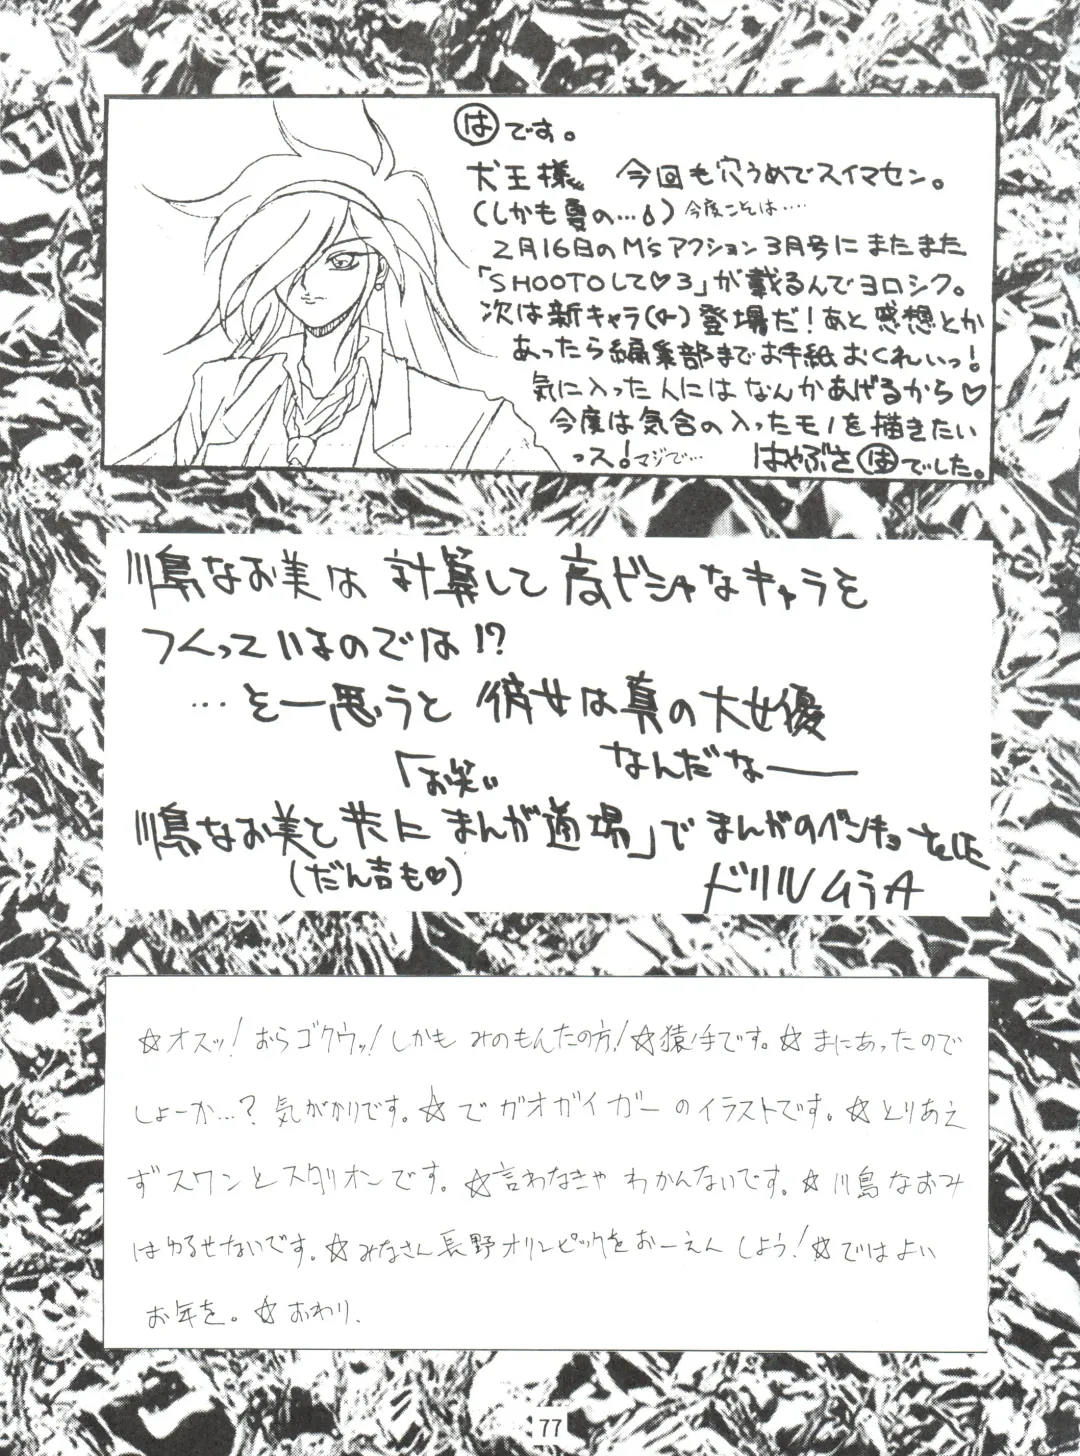 はです。
犬王様 今回も穴うめでスイマセン。
(しかも夏の…) 今度こそは‥‥
2月16日のM'sアクション3月号にまたまた
「SHOOTOして♡3」が載るんでヨロシク。
次は新キャラ(♀)登場だ!あと感想とか
あったら編集部までお手紙おくれいっ!
気に入った人にはなんかあげるから♡
今度は気合の入ったモノを描きたい
っス!マジで…
はやぶさ はでした。
川島なお美は計算して高ビシャなキャラを
つくっているのでは!?
…と一思うと彼女は真の大女優
なんだなー
「お笑い
川島なお美と共にまんが道場」でまんがのベンキョーをした
(だん吉も♡)
ドリルムラA
☆オスッ!おらゴクウッ!しかもみのもんたの方!☆猿手です。☆まにあったので
しょーか…?気がかりです。☆でガオガイガーのイラストです。☆とりあえ
ずスワンとスタリオンです。☆言わなきゃわかんないです。☆川島なおみ
はゆるせないです。☆みなさん長野オリンピックをおーえんしよう!☆ではよい
お年を。☆おわり.
77